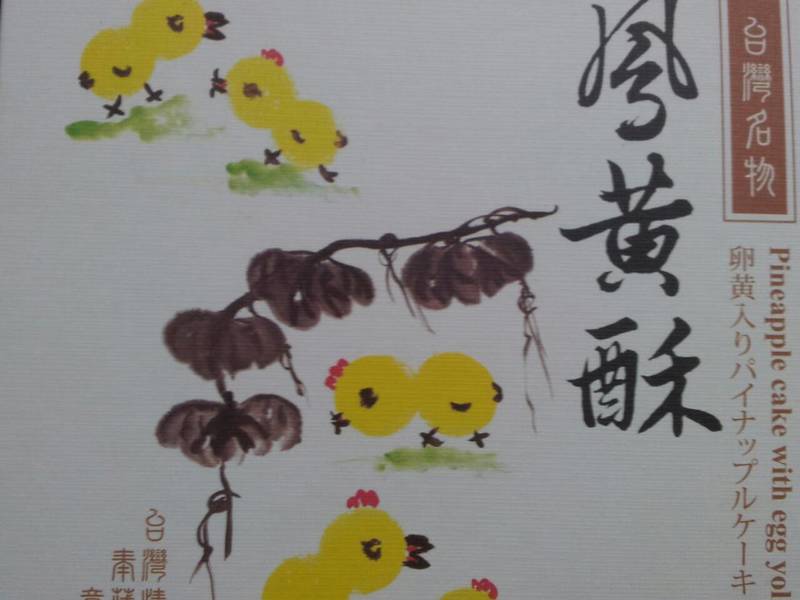 台灣名物
鳳黃酥
Pineapple cake with egg yol
卵黄入りパイナップルケーキ
台灣情
奉
意